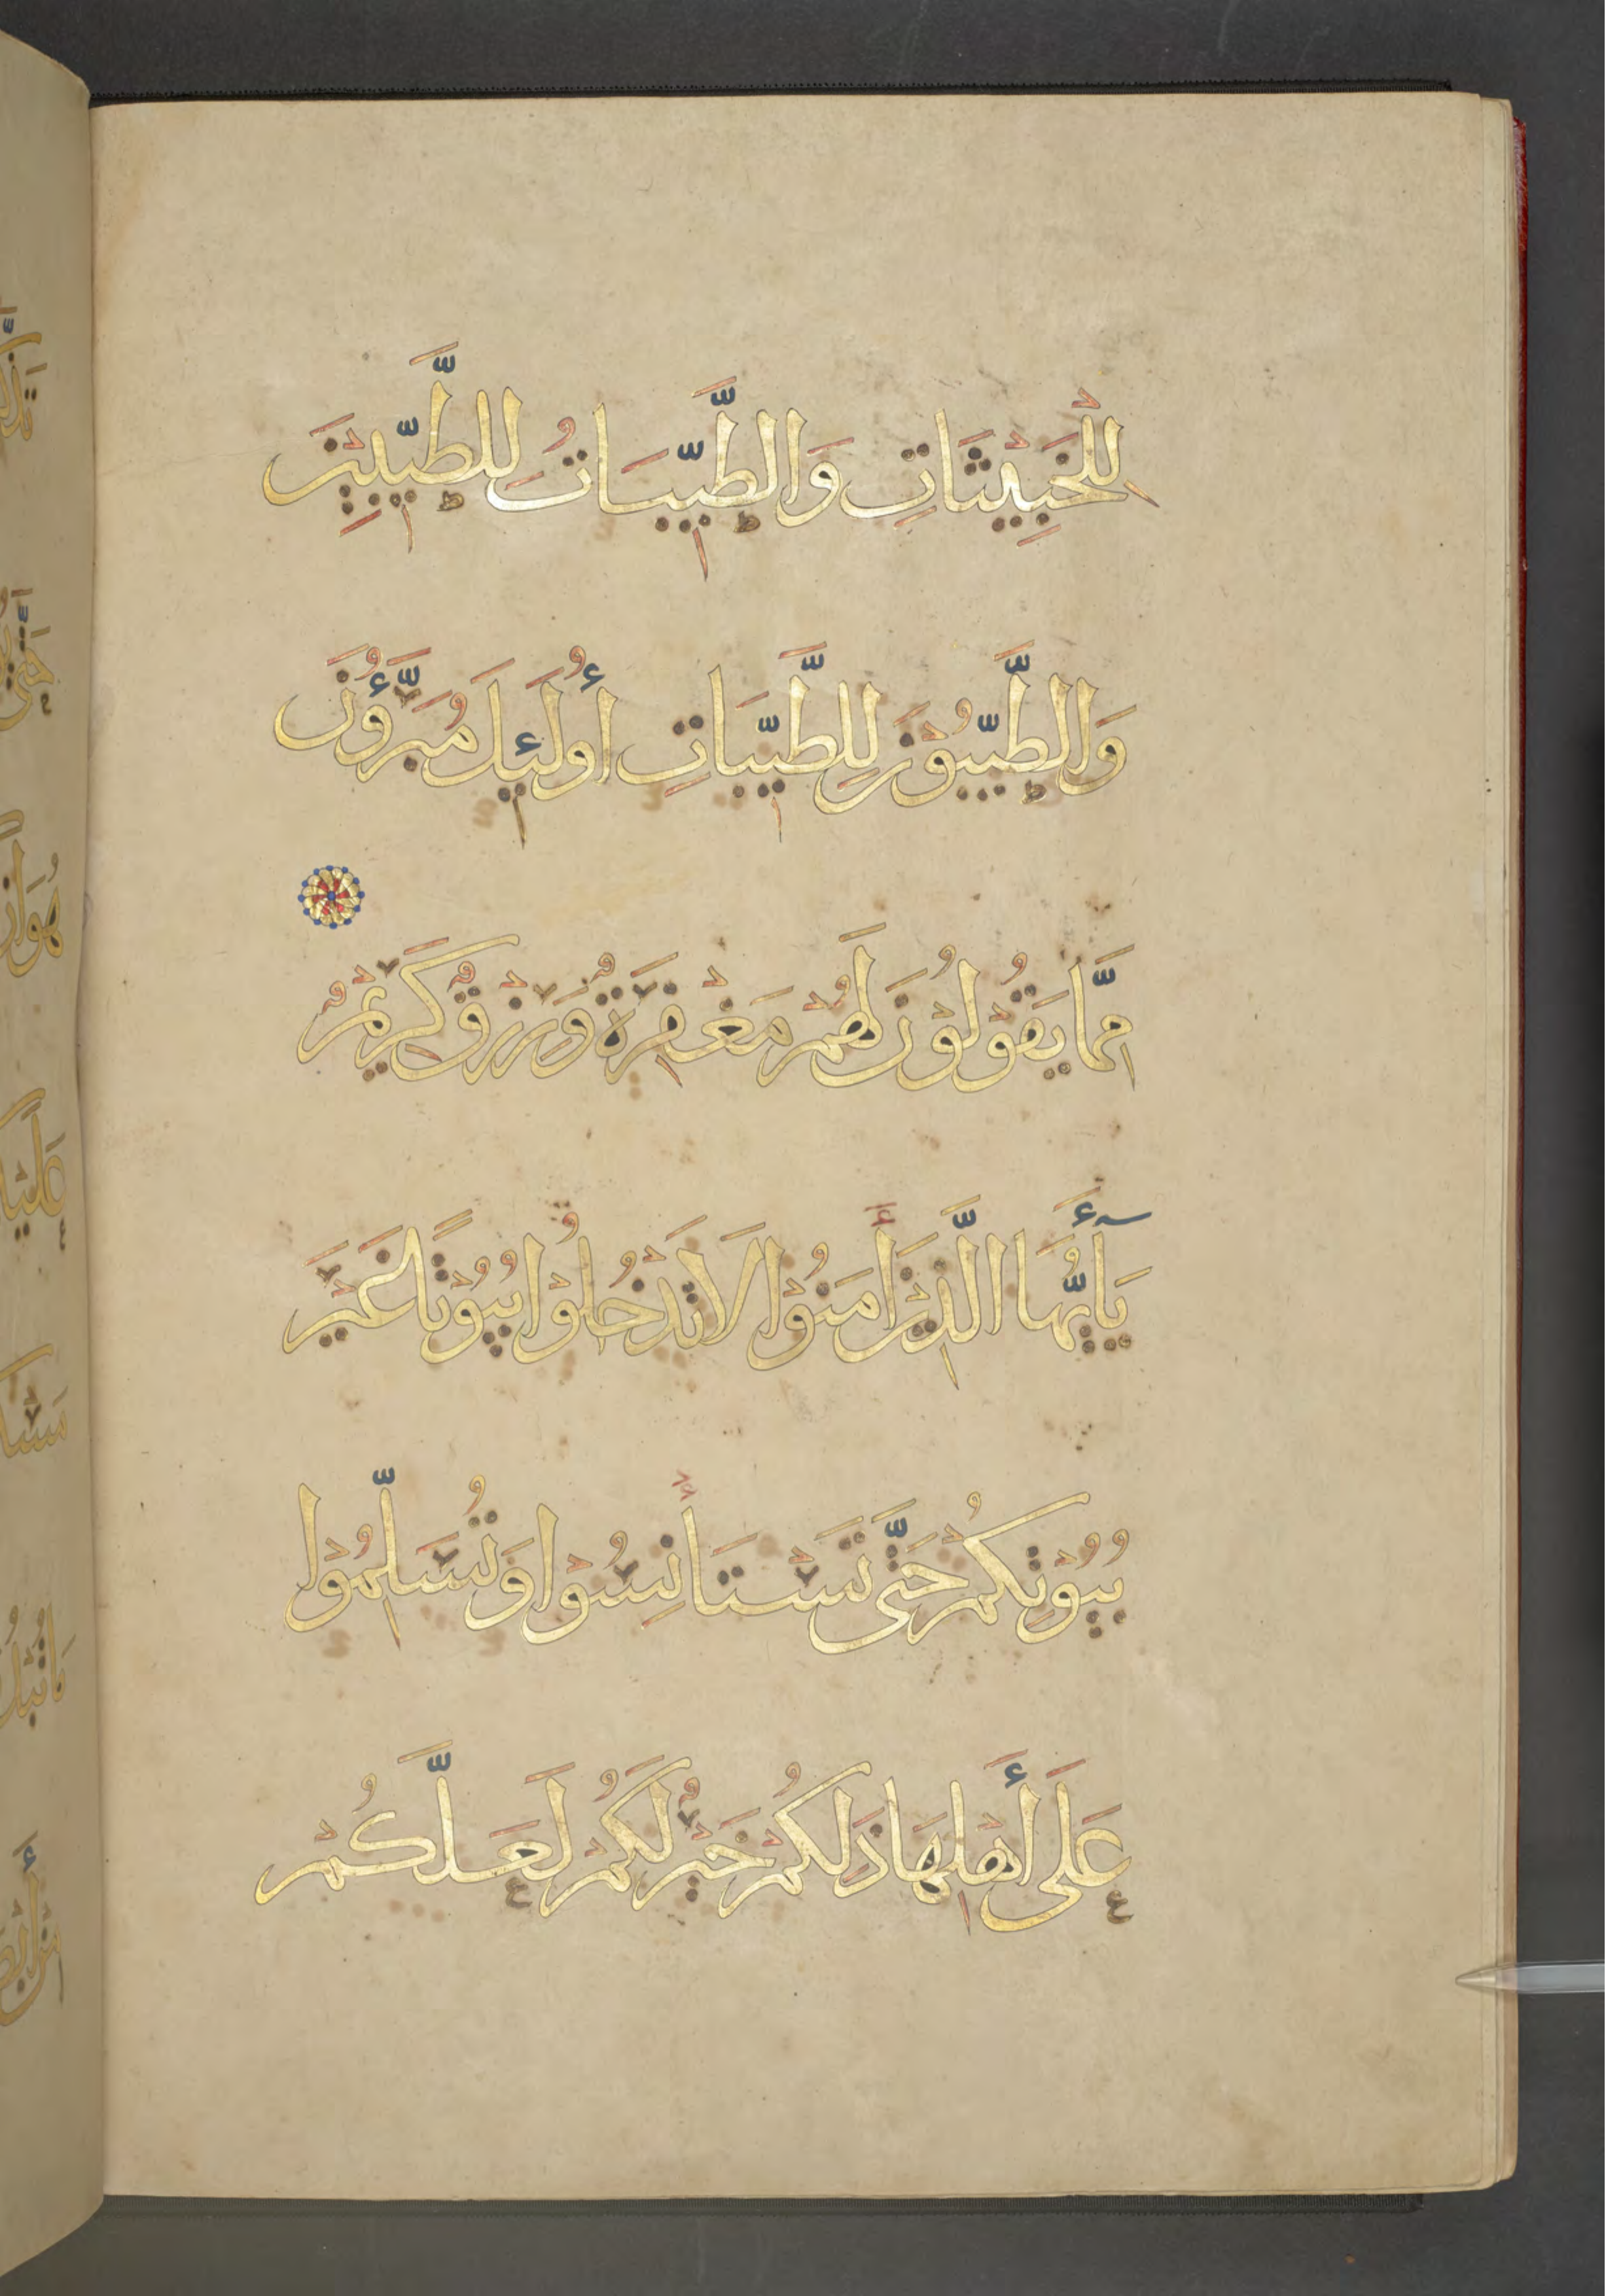 لِلْخَبِيْثَاتِ وَالطَّيِّبَاتُ لِلطَّيِّبِيْنَ
وَالطَّيِّبُوْنَ لِلطَّيِّبَاتِ أُولَئِكَ مُبَرَّؤُنَ
مِمَّا يَقُوْلُوْنَ لَهُمْ مَغْفِرَةٌ وَرِزْقٌ كَرِيْمٌ
يَآأَيُّهَا الَّذِيْنَ أٰمَنُوْا لَا تَدْخُلُوْا بُيُوْتًا غَيْرَ
بُيُوْتِكُمْ حَتَّى تَسْتَأْنِسُوْا وَتُسَلِّمُوْا
عَلَى أَهْلِهَا ذَلِكُمْ خَيْرٌ لَكُمْ لَعَلَّكُمْ